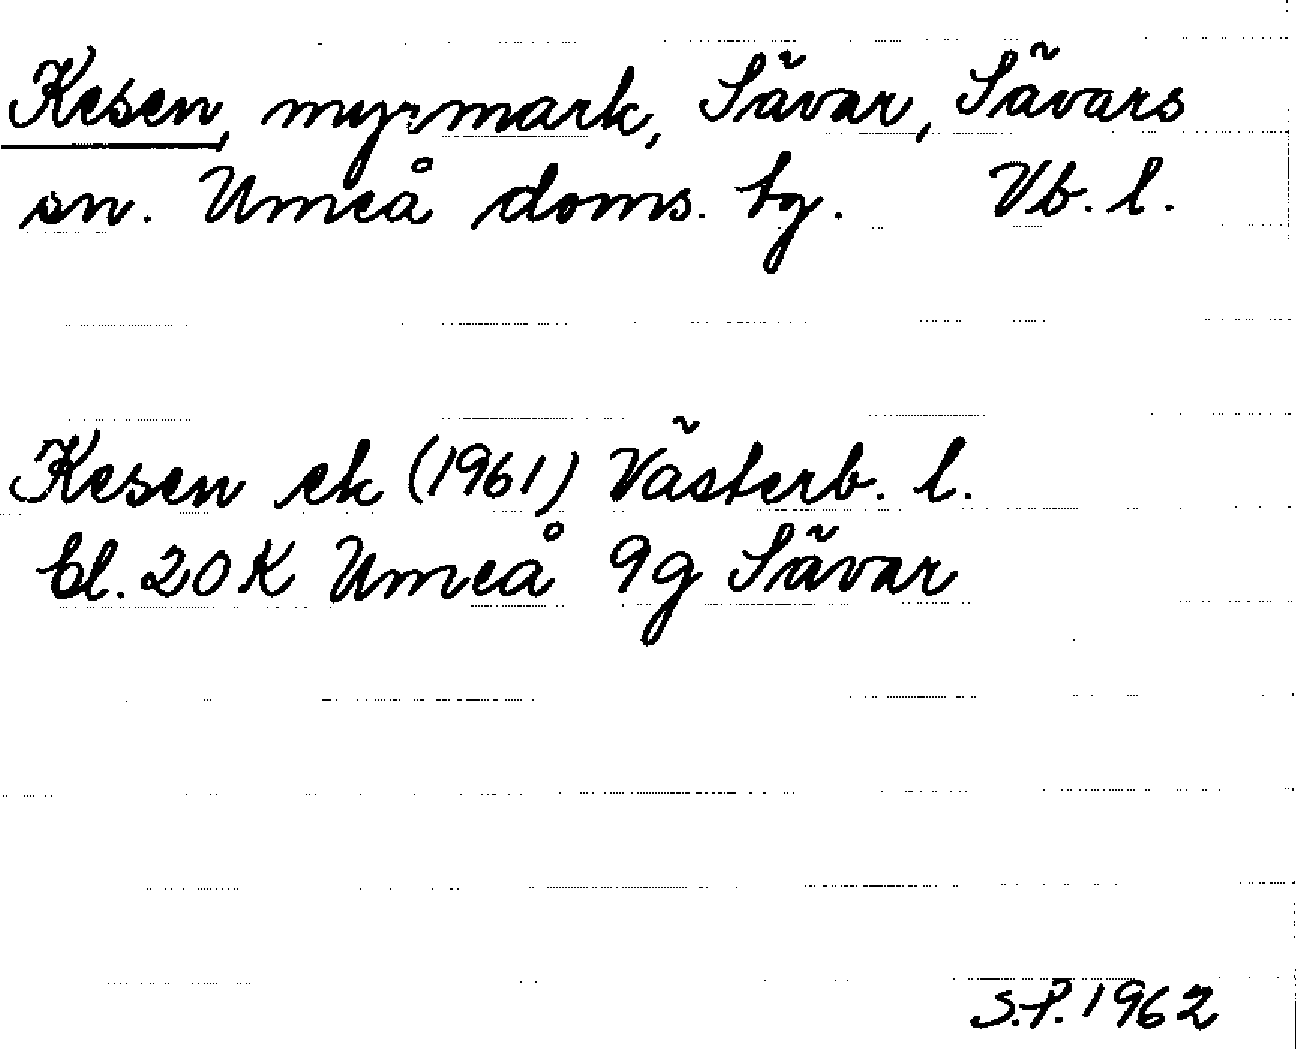 Kesen, myrmark, Sävar, Sävars
sn. Umeå doms. tg. Vb. l.
Kesen ek (1961) Västerb. l.
bl. 20 K Umeå 9g Sävar
S.P. 1962